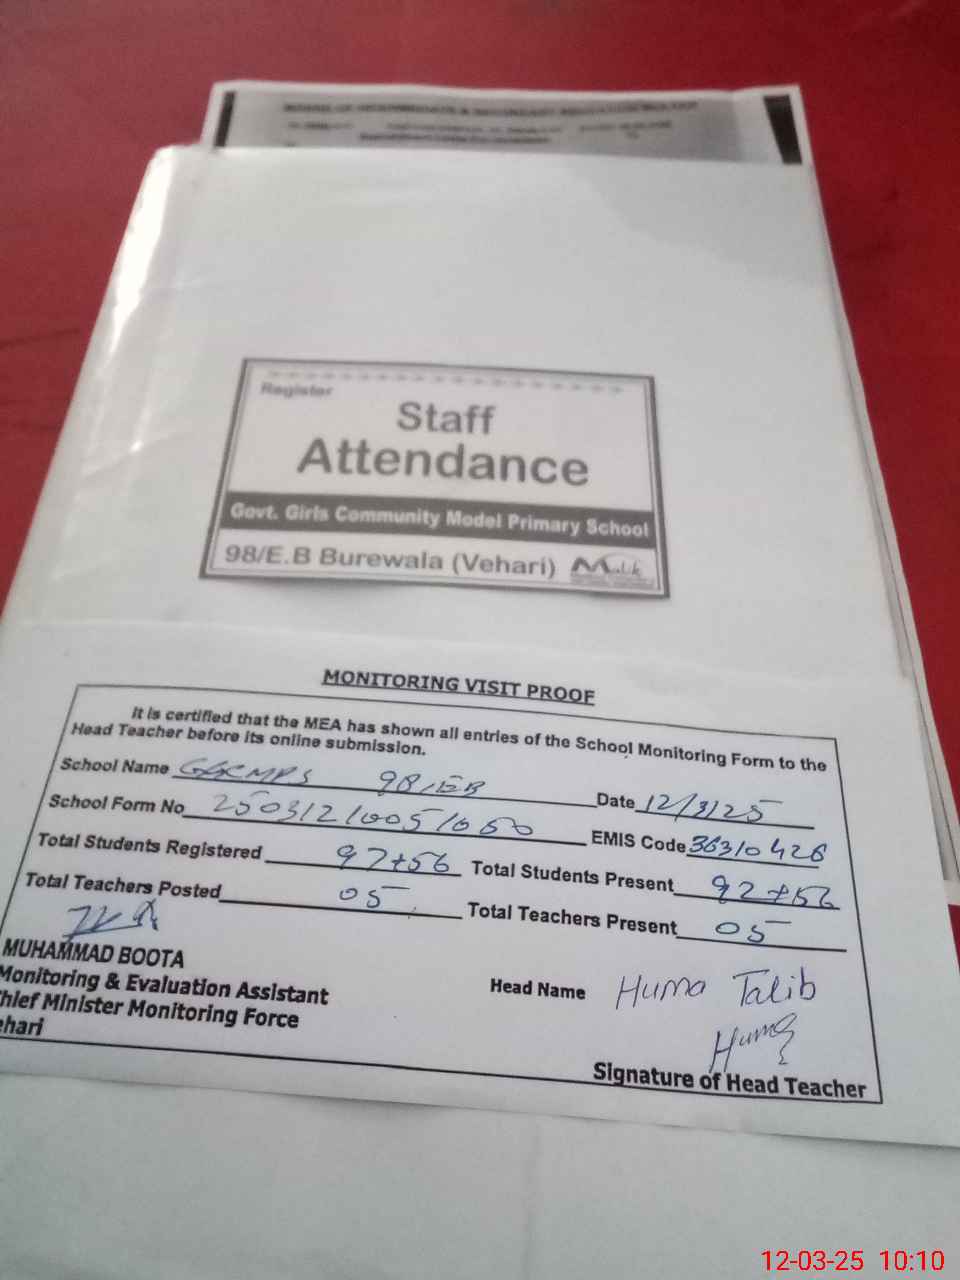 Register
Staff
Attendance
Govt. Girls Community Model Primary School
98/E.B Burewala (Vehari) Malik
MONITORING VISIT PROOF
It is certified that the MEA has shown all entries of the School Monitoring Form to the
Head Teacher before its online submission.
School Name GGCMPS 98/EB Date 12/3/25
School Form No EMIS Code 36310426
Total Students Registered 97+56 Total Students Present 92+56
Total Teachers Posted 05 Total Teachers Present 05
MUHAMMAD BOOTA
Monitoring & Evaluation Assistant
Chief Minister Monitoring Force
ehari
Head Name Huma Talib
Huma
Signature of Head Teacher
12-03-25 10:10